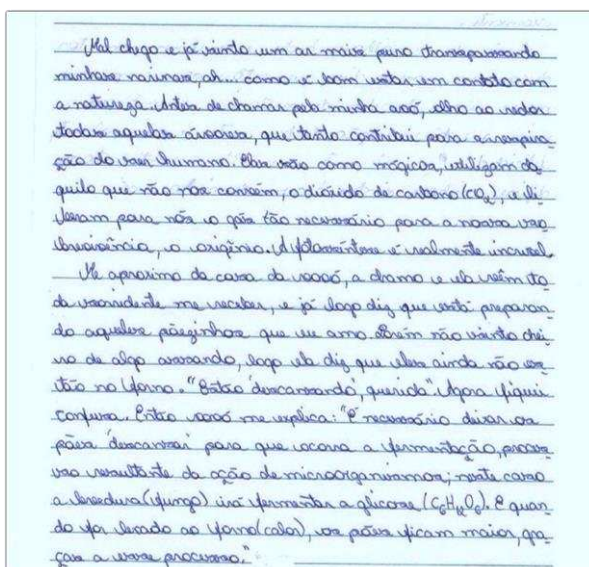 Mal chego e já sinto um ar mais puro transpassando
minhas narinas, ah... como é bom estar em contato com
a natureza. Antes de chamar pela minha avó, olho ao redor
todas aquelas árvores, que tanto contribui para a respira
ção do ser humano. Elas são como mágicas, utilizam da
quilo que não nos convém, o dióxido de carbono (CO2), e li
beram para nós o gás tão necessário para a nossa so
brevivência, o oxigênio. A fotossíntese é realmente incrível.
Me aproximo da casa da vovó, a chamo e ela vêm to
da sorridente me receber, e já logo diz que está preparan
do aqueles pãezinhos que eu amo. Porém não sinto chei
ro de algo assando, logo ela diz que eles ainda não es
tão no forno. "Estão 'descansando', querida". Agora fiquei
confusa. Então vovó me explica: "É necessário deixar os
pães 'descansar' para que ocorra a fermentação, proces
so resultante da ação de microorganismos; neste caso
a levedura (fungo) irá fermentar a glicose (C6H12O6). E quan
do for levado ao forno (calor), os pães ficam maior, gra
ças a esse processo."